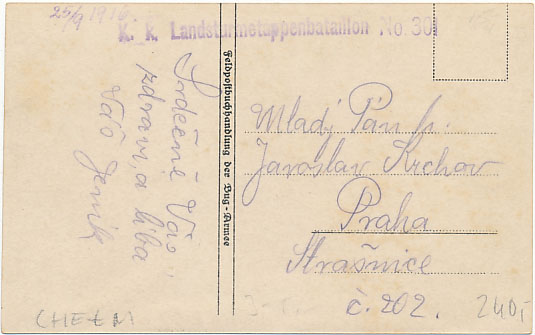 25/9 1916.
K. k. Landsturmetappenbataillon No. 301
Srdečně Vás
zdraví a líbá
Váš Jeník
Feldpostbuchhandlung der Bug-Armee
Mladý Pán p.
Jaroslav Krchov
Praha
Strašnice
č. 202.
(HEŁM
240,-